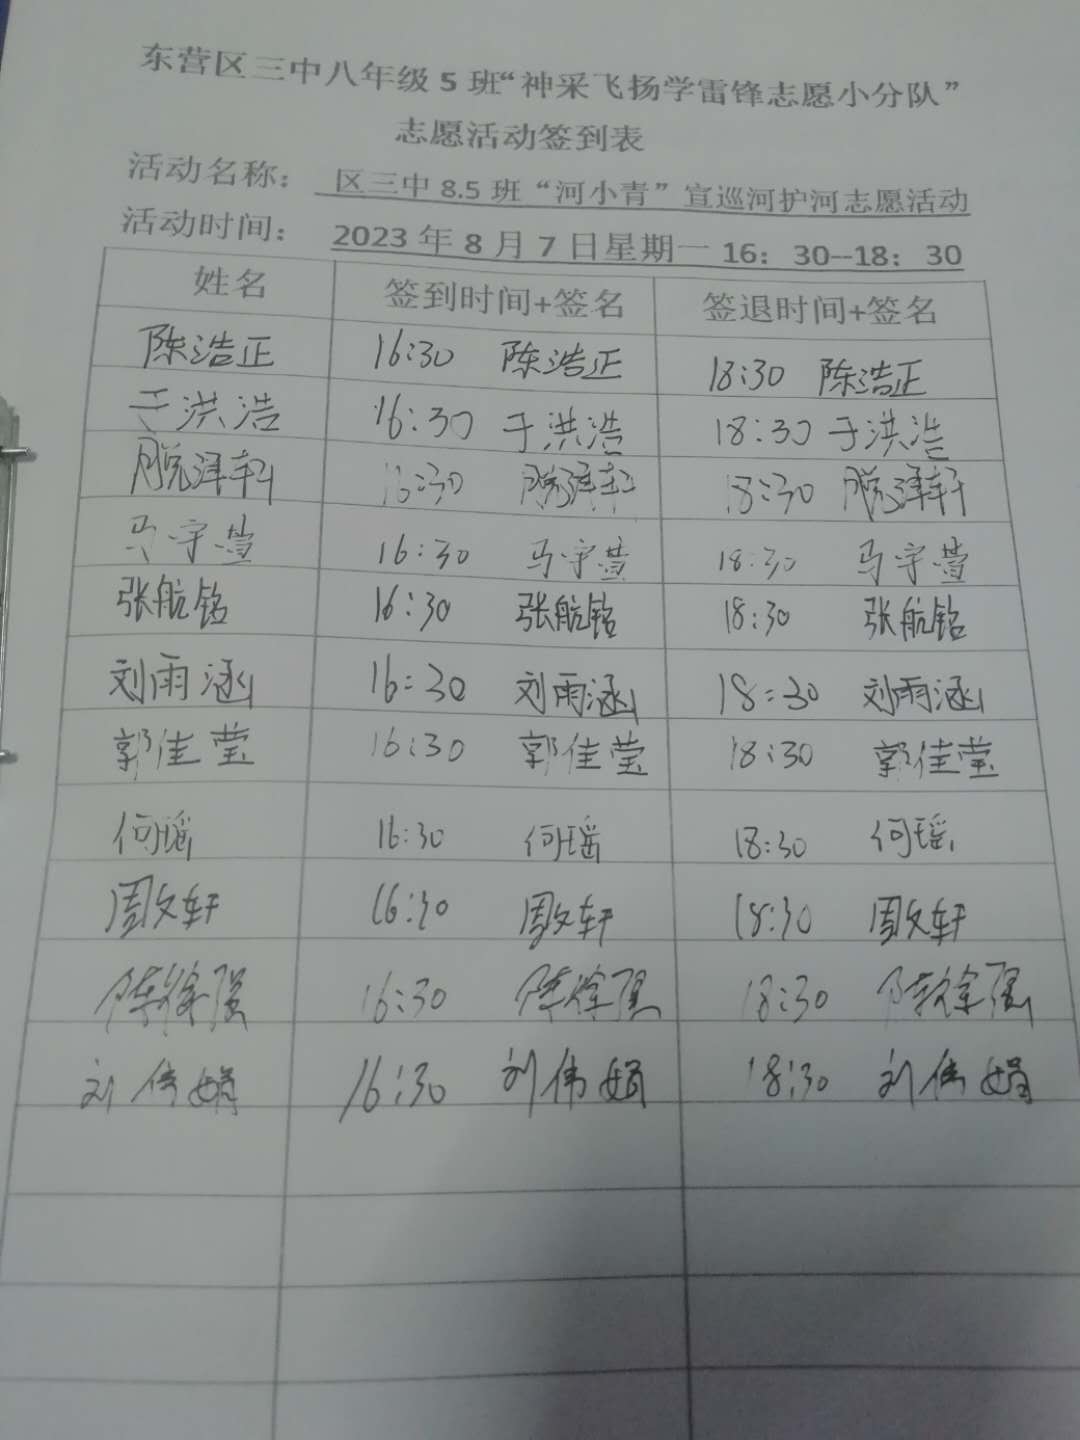 东营区三中八年级5班“神采飞扬学雷锋志愿小分队”
志愿活动签到表
活动名称： 区三中8.5班“河小青”宣巡河护河志愿活动
活动时间： 2023年8月7日星期一 16：30--18：30
姓名 签到时间+签名 签退时间+签名
陈浩正 16:30 陈浩正 18:30 陈浩正
于洪浩 16:30 于洪浩 18:30 于洪浩
脱泽轩 16:30 脱泽轩 18:30 脱泽轩
马宇萱 16:30 马宇萱 18:30 马宇萱
张航铭 16:30 张航铭 18:30 张航铭
刘雨涵 16:30 刘雨涵 18:30 刘雨涵
郭佳莹 16:30 郭佳莹 18:30 郭佳莹
何瑶 16:30 何瑶 18:30 何瑶
周文轩 16:30 周文轩 18:30 周文轩
陈徐强 16:30 陈徐强 18:30 陈徐强
刘伟娟 16:30 刘伟娟 18:30 刘伟娟